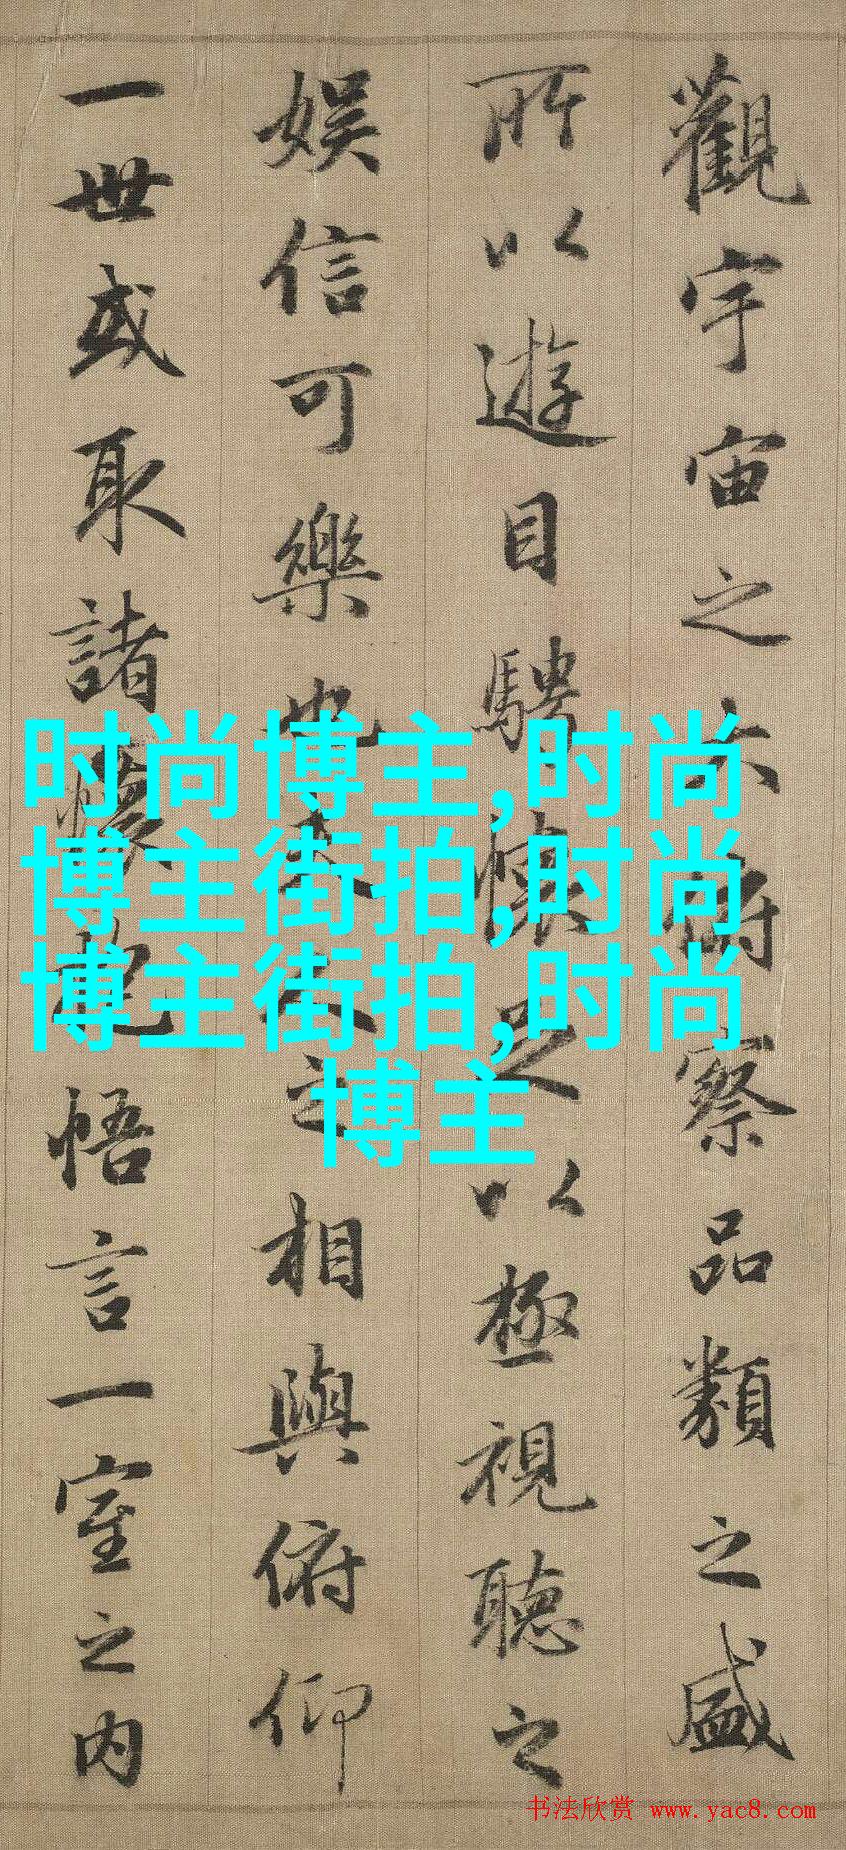 觀宇宙之大俯察品類之盛
所以遊目騁懷足以極視聽之
娛信可樂也夫人之相與俯仰
一世或取諸懷抱悟言一室之内
时尚博主,时尚
博主街拍,时尚
博主街拍,时尚
博主
书法欣赏 www.yac8.com